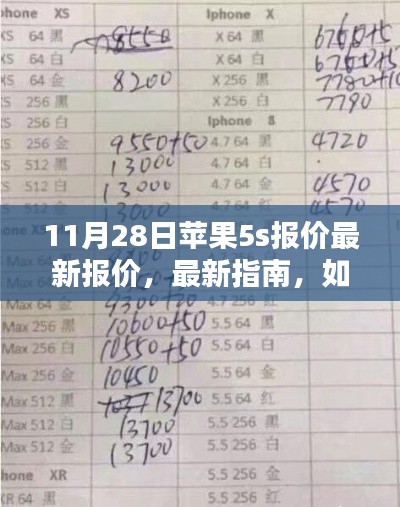 Iphone XS Iphone X
XS 64 黑 8550 X 64 黑 6760+5
XS 64 白 X 64 白 6760+5
XS 64 金 8200 X 256 黑 7780+10
XS 256 黑 X 256 白 7790
XS 256 白 Iphone 8
XS 256 金 9550+50 4.7 64 黑 4720
XS 512 黑 13000 4.7 64 白
13000 4.7 64 金 4570
13000 4.7 64 红 4570
11月28日苹果5s报价最
新报价，最新指南，如
Max 64 金
Max 256 黑 10600+50 5.5 64 金
Max 256 白 10550+50 5.5 64 白
Max 256 金 10450 5.5 64 金
Max 512 黑 13700 5.5 64 红
Max 512 白 13700 5.5 256 黑
Max 512 金 13700 5.5 256 白
Iphone XR 5.5 256 金
XR 64 黑 5.5 256 红